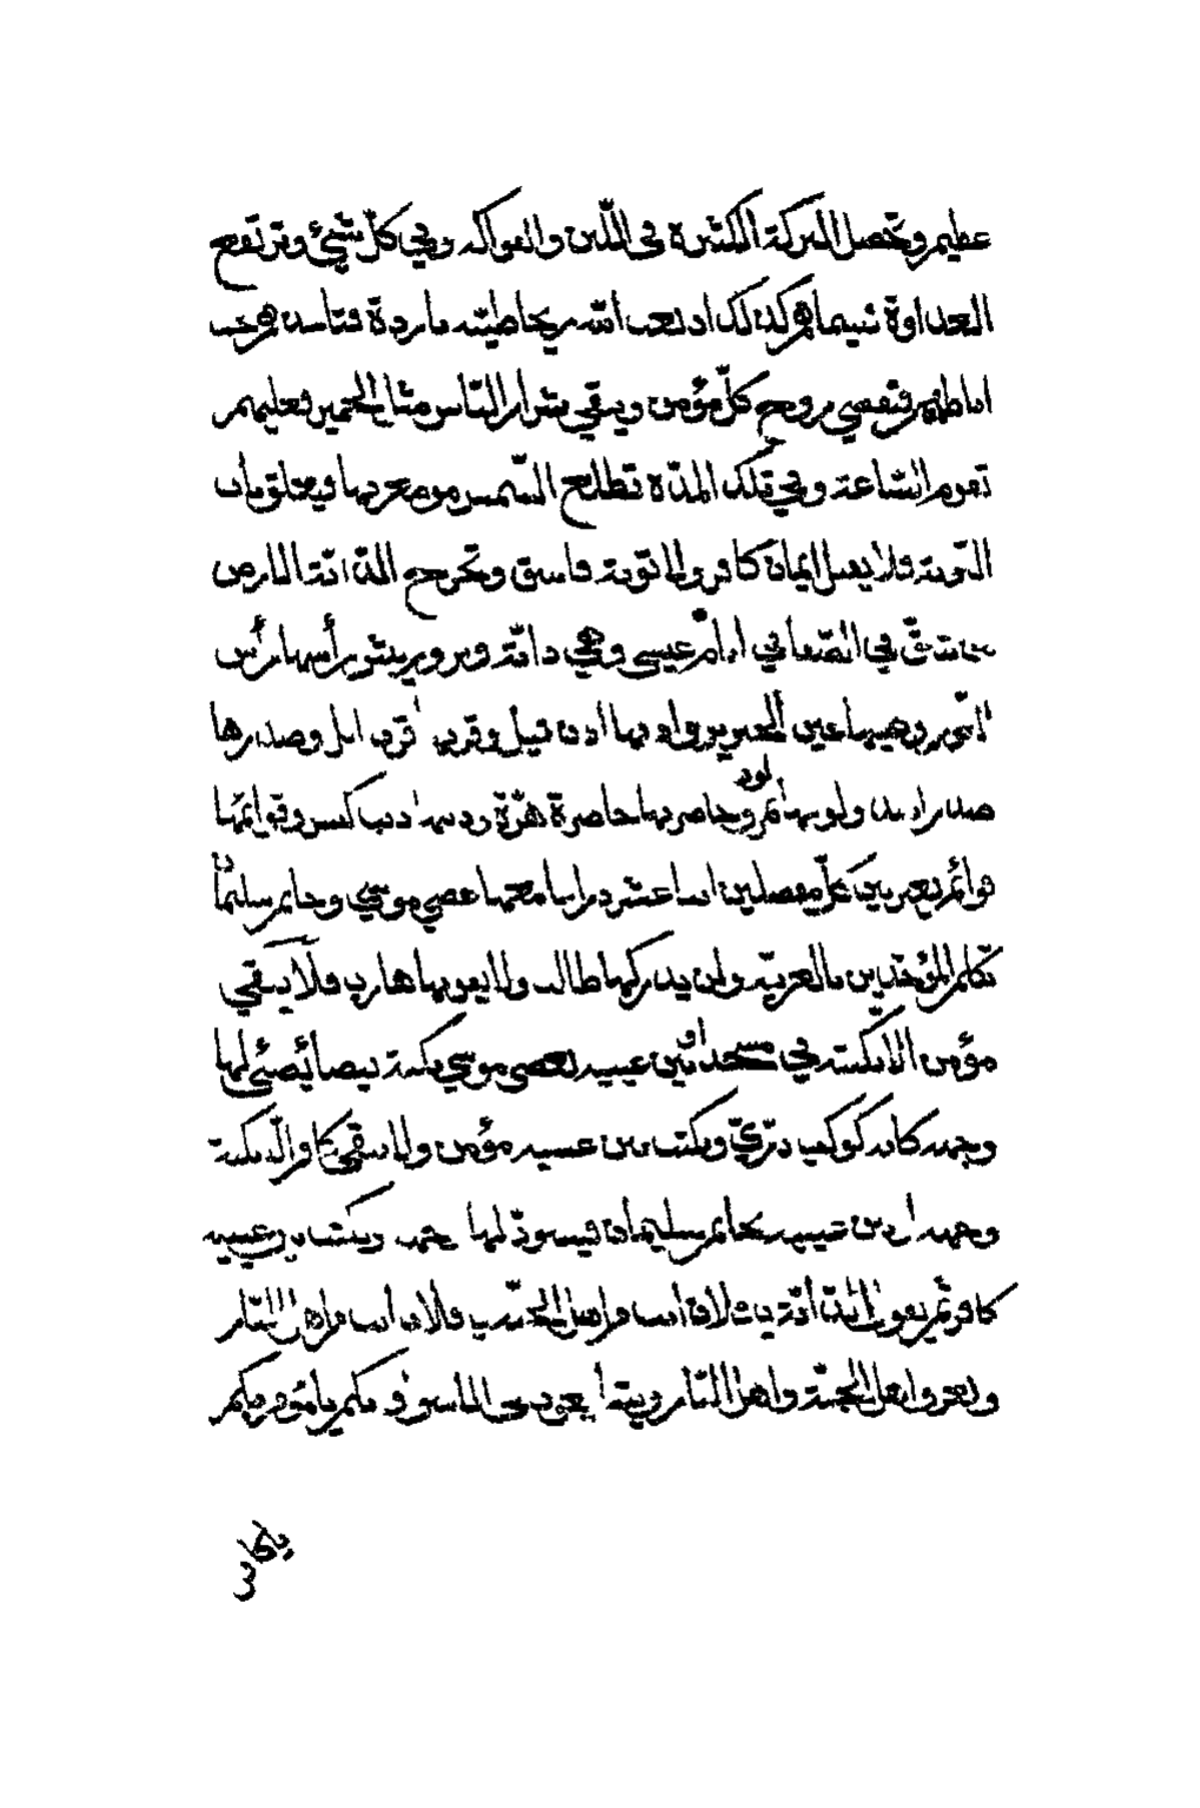 عظيم وتحصل البركة الكثيرة في اللبن والفواكه وفي كل شيئ وترتفع
العداوة فبينماهم كذلك اذ بعث الله ريحا طيبة باردة فتاخذهم تحت
اباطهم فتقبض روح كل مؤمن ويبقي شرار الناس مثل الحمير فعليهم
تقوم الساعة وفي تلك المدة تطلع الشمس من مغربها فيغلق باب
التوبة فلا يقبل ايمان كافر ولا توبة فاسق وتخرج الدابة الارض
تنشق في الصفا في ايام عيسى وهي دابة وبر وريش رأسها رأس
الثور وعينها عين الخنزير واذنها اذن فيل وقرنها قرن ايل وصدرها
صدر اسد ولونها لون نمر وخاصرتها خاصرة هرة وذنبها ذنب كبش وقوائمها
قوائم بعير بين كل مفصلين اثنا عشر ذراعا معها عصى موسي وخاتم سليمان
تكلم المؤمنين بالعربية ولن يدركها طالب ولا يفوتها هارب فلا يبقي
مؤمن الا نكتته في مسجده بين عينيه بعصى موسي نكتة بيضا يضئ لها
وجهه كانه كوكب دري ويكتب بين عينيه مؤمن ولا يبقى كافر الا نكتة
وجهه بين عينيه بخاتم سليمان فيسود لها وجهه ويكتب بين عينيه
كافر ثم يقول الدابة يا فلان انت من اهل الجنة ويا فلان انت من اهل النار
ويعرف اهل الجنة واهل النار ويتبايعون في الاسواق بكم يا مؤمن بكم
يا كافر